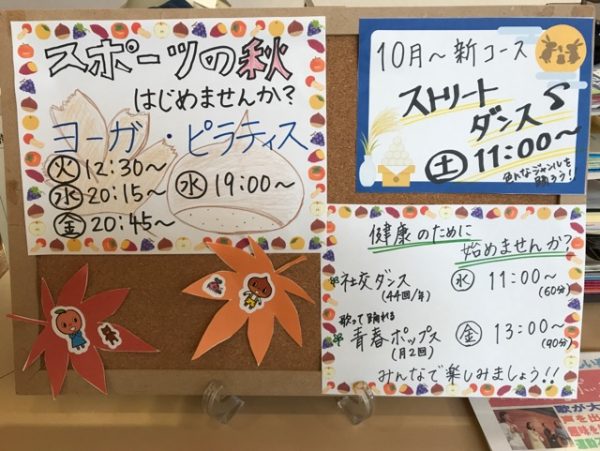 スポーツの秋
はじめませんか?
ヨーガ・ピラティス
火 12:30〜
水 20:15〜
金 20:45〜
水 19:00〜
10月〜新コース
ストリート
ダンスS
土 11:00〜
色んなジャンルを
踊ろう!
健康のために
始めませんか?
社交ダンス 水 11:00〜
(44回/年) (60分)
歌って踊れる
青春ポップス 金 13:00〜
(月2回) (90分)
みんなで楽しみましょう!!
歌が大
声を出
趣味を